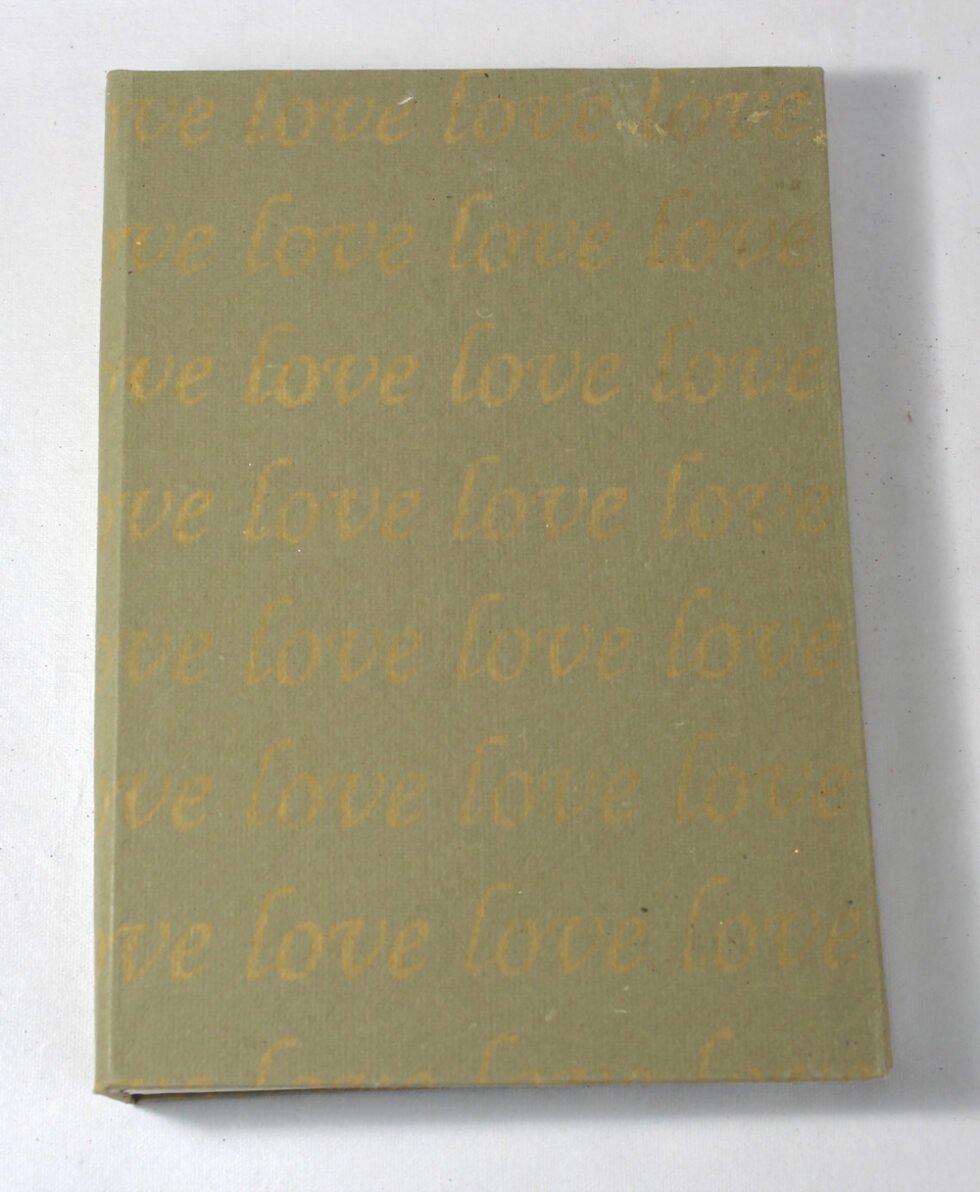 ve love love love
ove love love love
ove love love love
ove love love love
ove love love love
ove love love love
ove love love love
ove love love love